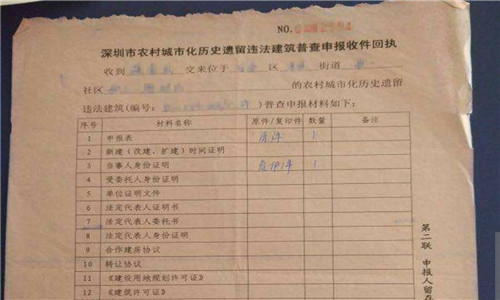 NO.
深圳市农村城市化历史遗留违法建筑普查申报收件回执
收到 交来位于 区 街道
社区 的农村城市化历史遗留
违法建筑(编号: )普查申报材料如下:
序号 材料名称 原件/复印件 数量 备注
1 申报表 原件 1
2 新建(改建、扩建)时间证明
3 当事人身份证明 复印件 1
4 受委托人身份证明
5 单位证明文件
6 法定代表人证明书
7 法定代表人委托书
8 法定代表人身份证明
9 合作建房协议
10 转让协议
11 《建设用地规划许可证》
12 《建筑许可证》
第二联 申报人留存